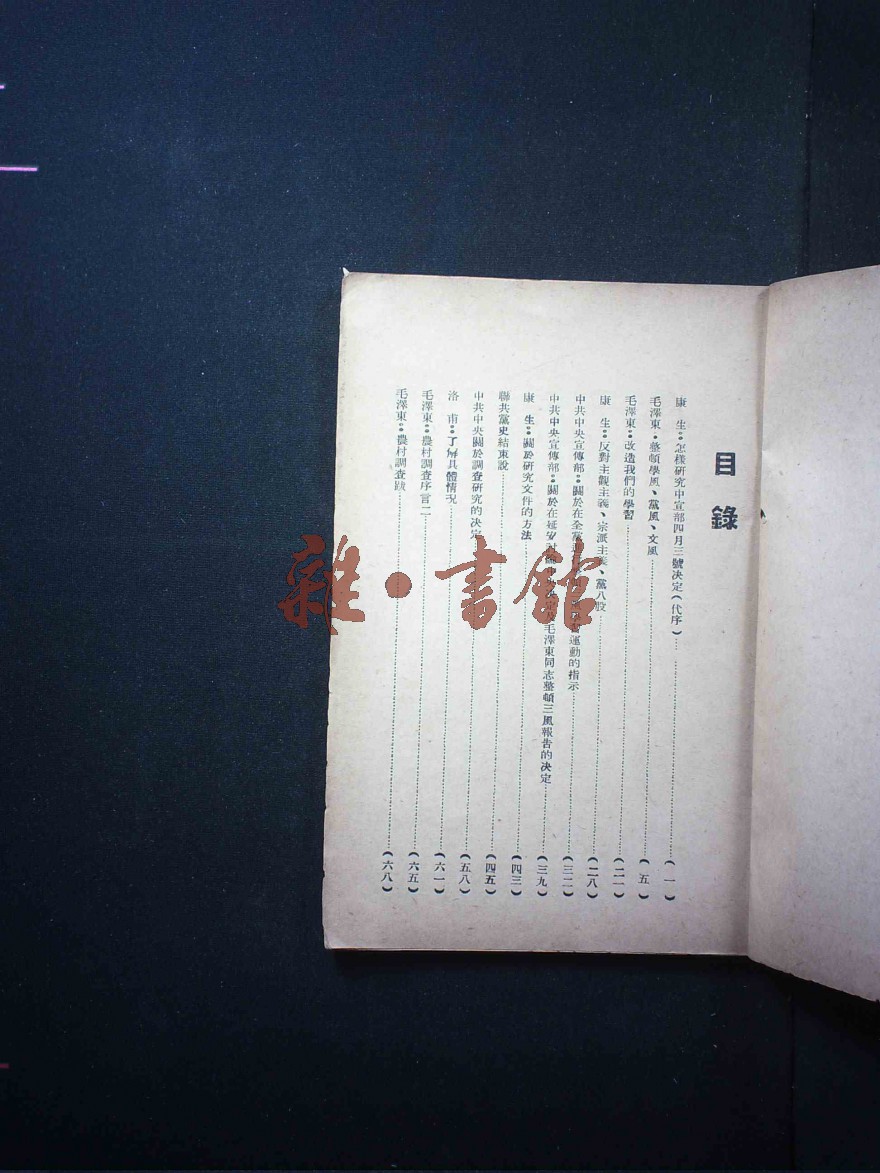 目錄
康 生：怎樣研究中宣部四月三號決定(代序)……(一)
毛澤東：整頓學風、黨風、文風……(五)
毛澤東：改造我們的學習……(二一)
康 生：反對主觀主義、宗派主義、黨八股……(二八)
中共中央宣傳部：關於在全黨 運動的指示……(三二)
中共中央宣傳部：關於在延安討論 毛澤東同志整頓三風報告的決定……(三九)
康 生：關於研究文件的方法……(四三)
聯共黨史結束說……(四五)
中共中央關於調查研究的決定……(五八)
洛 甫：了解具體情況……(六一)
毛澤東：農村調查序言二……(六五)
毛澤東：農村調查跋……(六八)
雜·書館